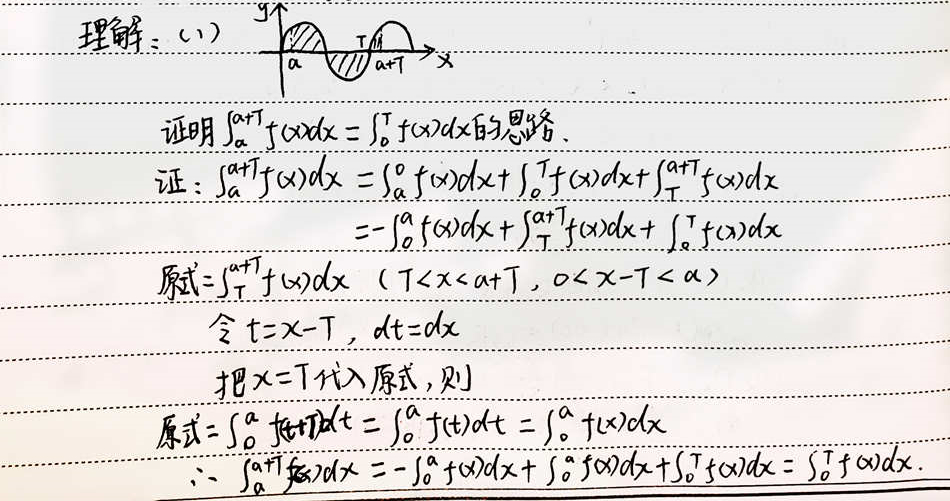 理解：(1)
y
T
a
a+T
x
证明∫ₐᵃ⁺ᵀf(x)dx=∫₀ᵀf(x)dx的思路.
证：∫ₐᵃ⁺ᵀf(x)dx=∫ₐ⁰f(x)dx+∫₀ᵀf(x)dx+∫_T^{a+T}f(x)dx
=-∫₀ᵃf(x)dx+∫_T^{a+T}f(x)dx+∫₀ᵀf(x)dx
原式=∫_T^{a+T}f(x)dx (T<x<a+T, 0<x-T<a)
令t=x-T, dt=dx
把x=T代入原式,则
原式=∫₀ᵃf(t+T)dt=∫₀ᵃf(t)dt=∫₀ᵃf(x)dx
∴ ∫ₐᵃ⁺ᵀf(x)dx=-∫₀ᵃf(x)dx+∫₀ᵃf(x)dx+∫₀ᵀf(x)dx=∫₀ᵀf(x)dx.